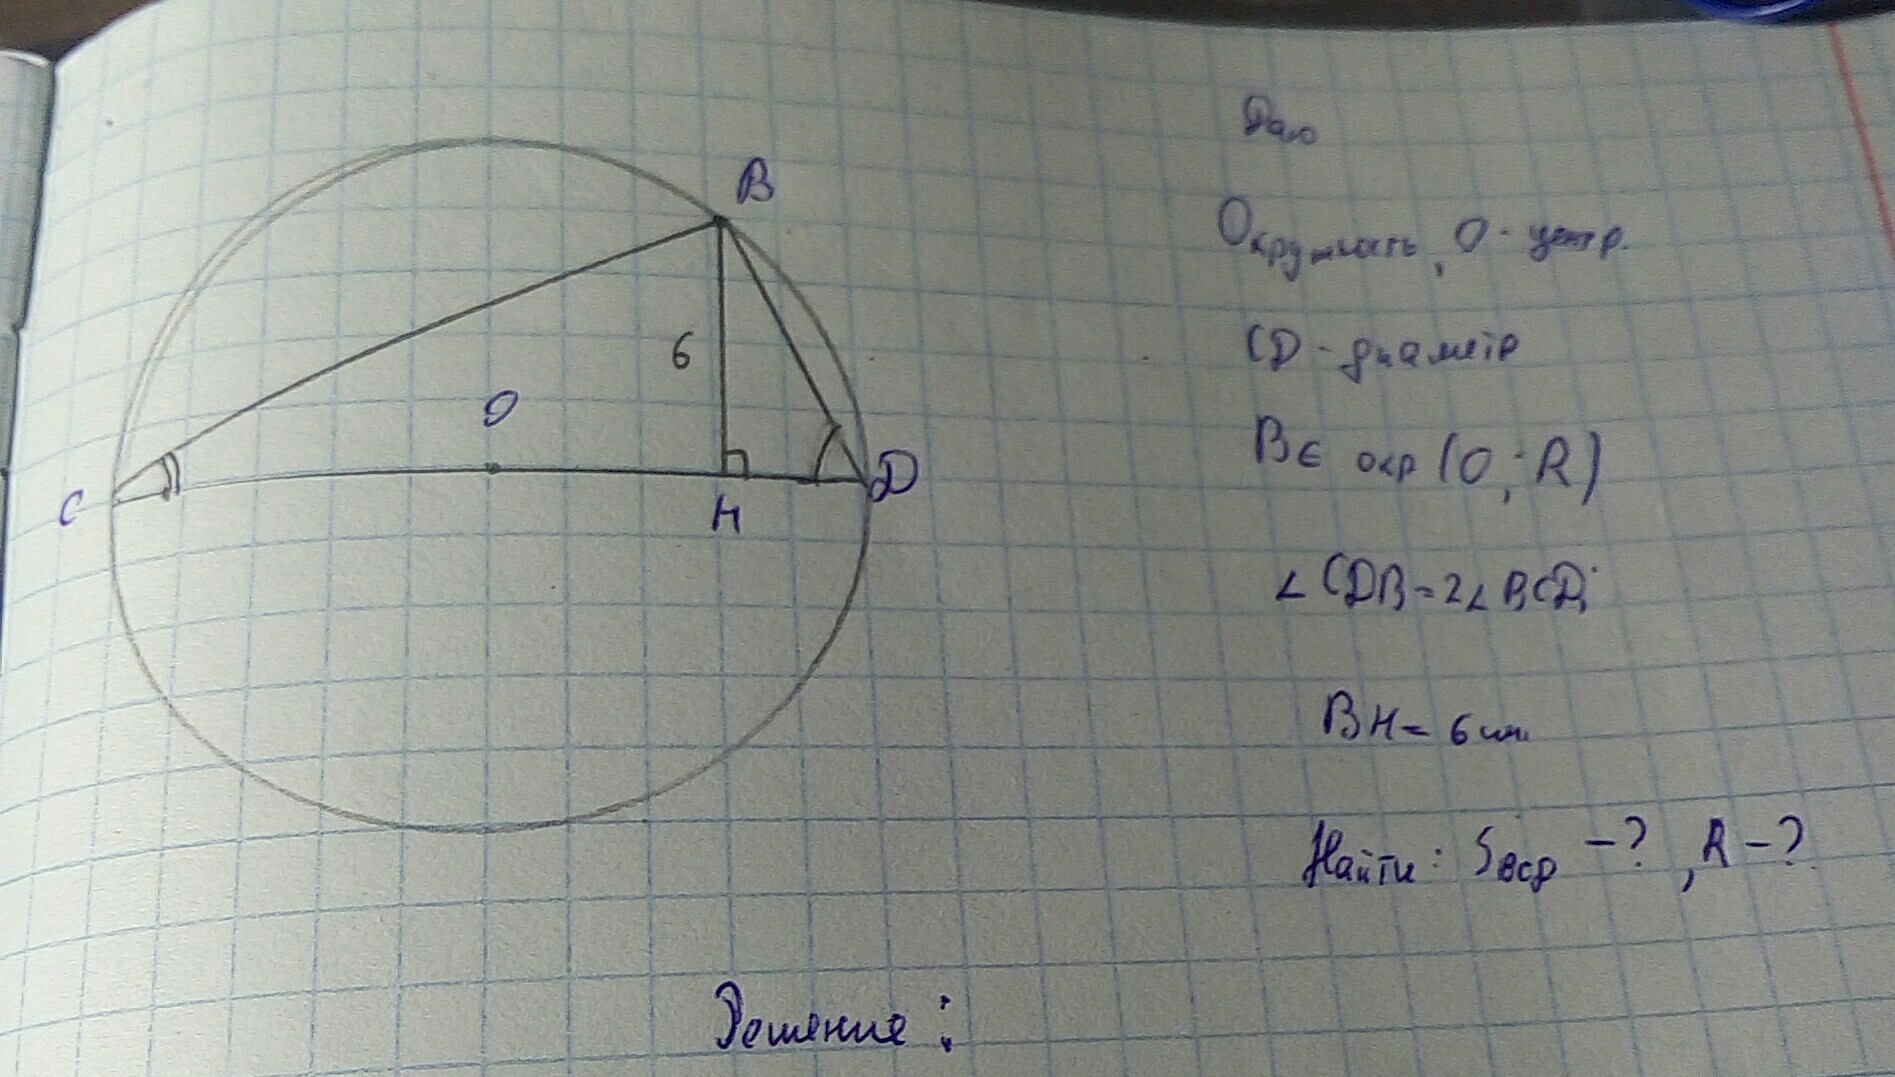 B
6
O
C
H
D
Дано
Окружность, О - центр.
CD - диаметр
B ∈ окр (O; R)
∠ CDB = 2∠ BCD;
BH = 6 см.
Найти: S BCD - ?, R - ?
Решение: